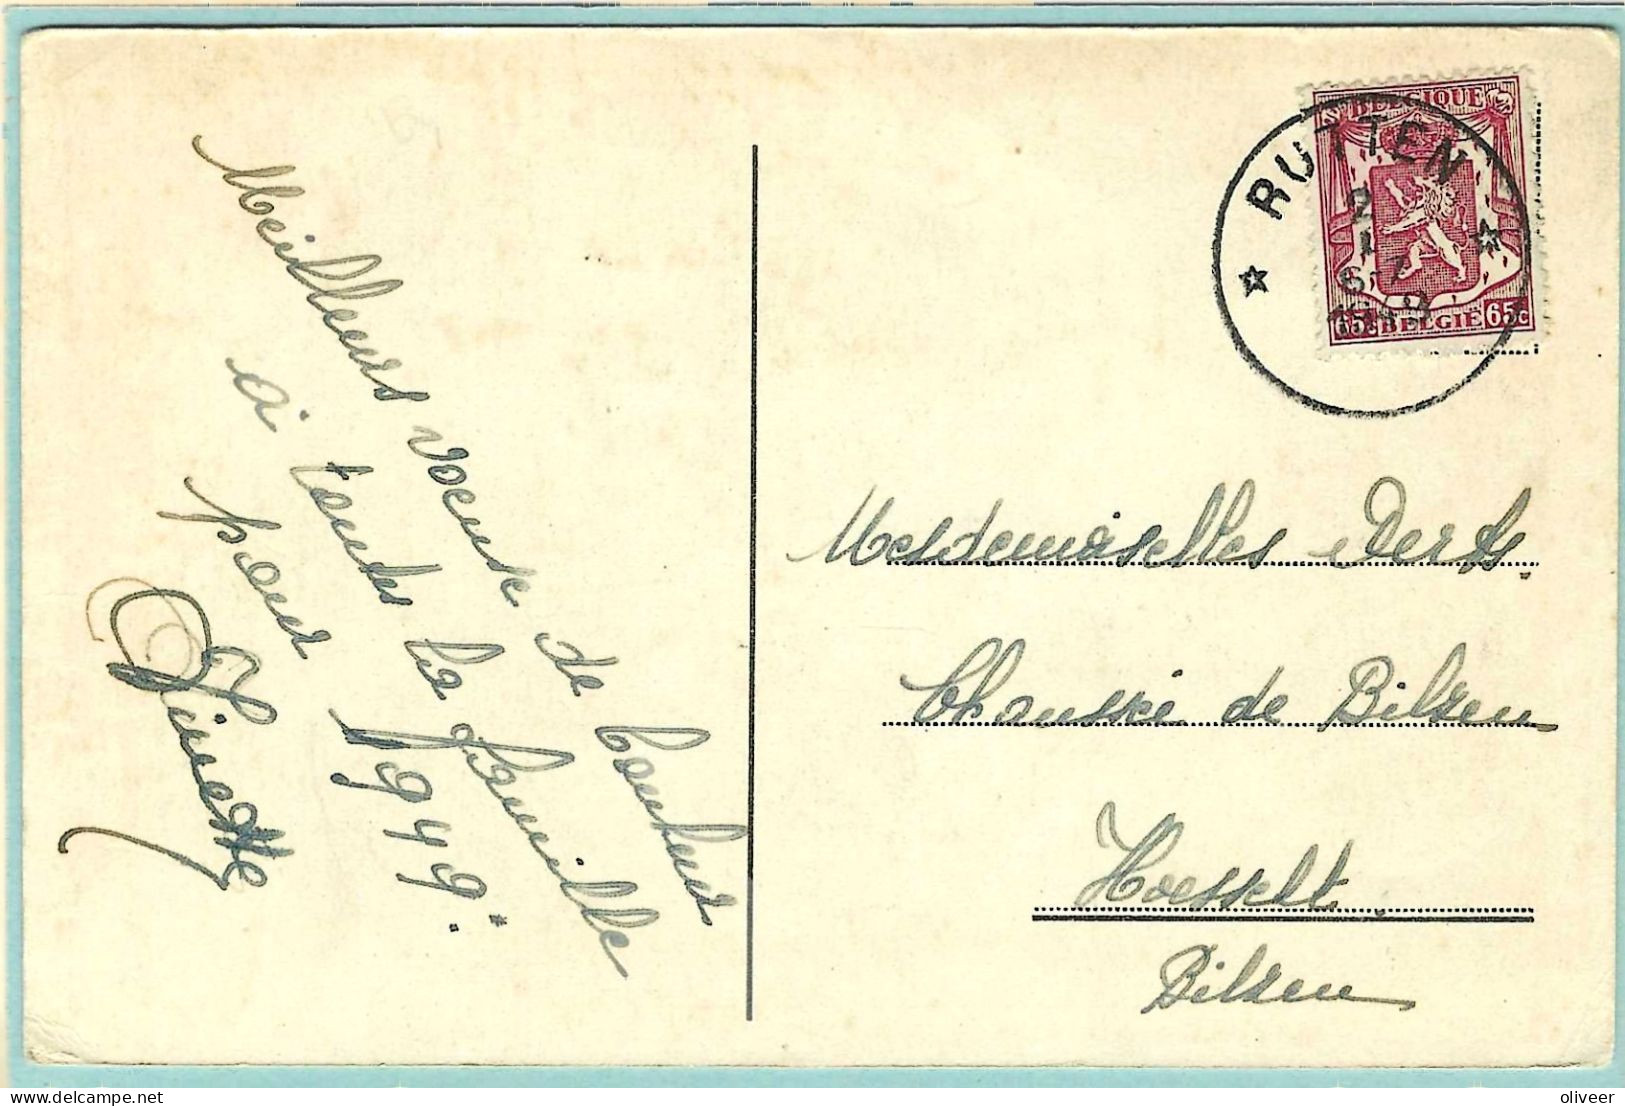 Meilleurs voeux de bonheur
à toute la famille
pour 1949.
Ginette
BELGIQUE
RUTTEN
2
1
6-7
65c BELGIE 65c
Mesdemoiselles
Chaussée de Bilsen
Hoesselt
Bilsen
oliveer